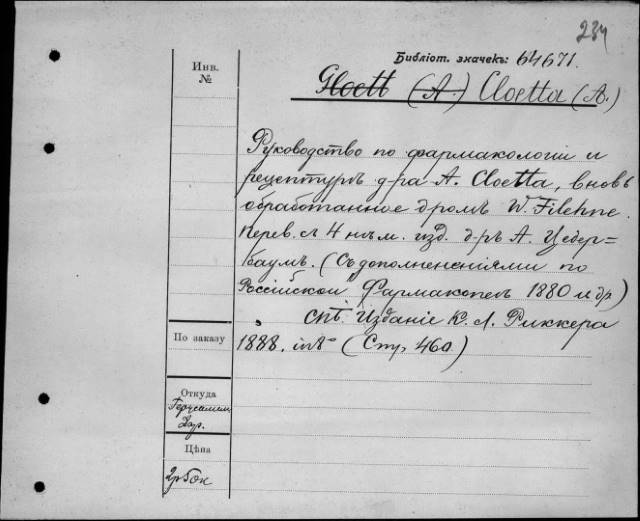 234
Библіот. значекъ: 64671.
Инв.
№
Gloett (A.) Cloetta (A.)
Руководство по фармакологіи и
рецептурѣ д-ра А. Cloetta, вновь
обработанное д-ромъ W. Filehne.
Перев. съ 4 нѣм. изд. д-ръ А. Цедер=
баумъ. (Съ дополненіями по
Россійской Фармакопеѣ 1880 и др)
спб. Изданіе К. Л. Риккера
По заказу
1888. in 8° (Стр. 460)
Откуда
Цѣна
2р 50к